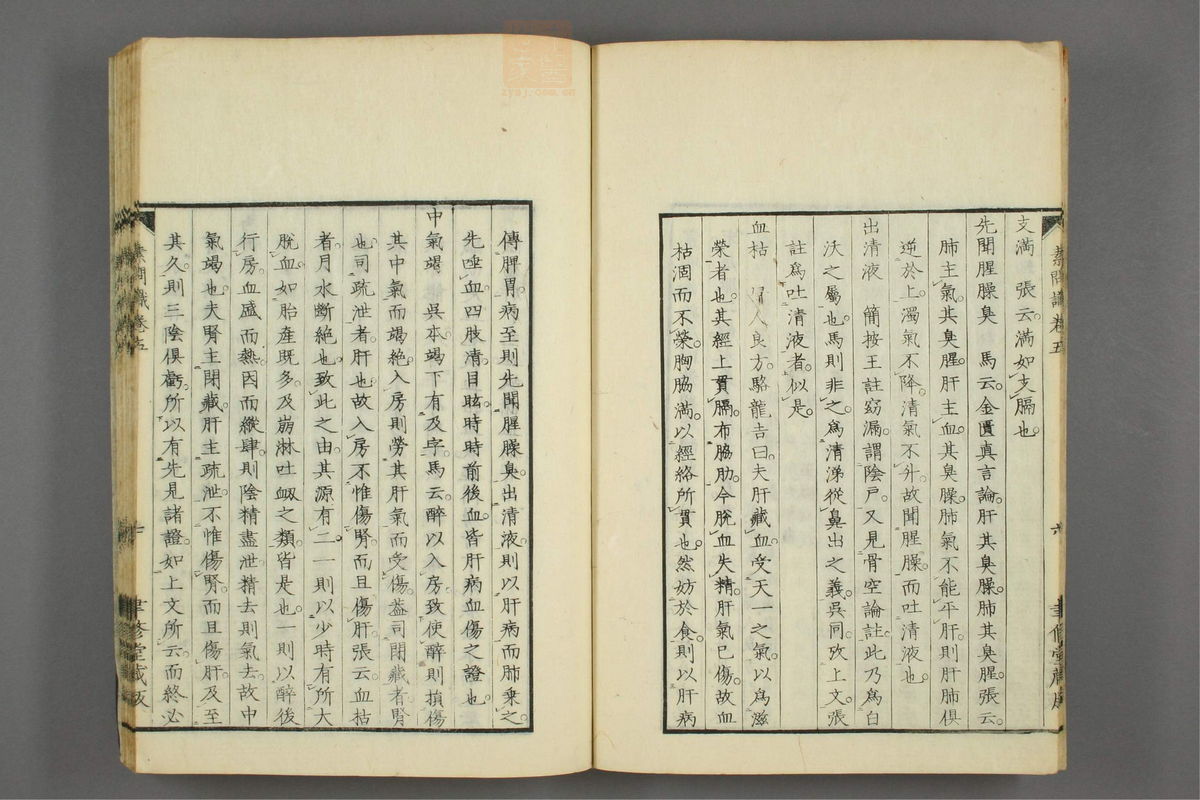 素問識卷五
六
聿修堂藏版
支滿　張云滿如支膈也
先聞腥臊臭　馬云金匱真言論肝其臭臊肺其臭腥張云
肺主氣其臭腥肝主血其臭臊肺氣不能平肝則肝肺俱
逆於上濁氣不降清氣不升故聞腥臊而吐清液也
出清液　簡按王註窈漏謂陰戶又見骨空論註此乃為白
沃之屬也馬則非之為清涕從鼻出之義吳同攷上文張
註為吐清液者似是
血枯　人良方駱龍吉曰夫肝藏血受天一之氣以為滋
榮者也其經上貫膈布脇肋今脫血失精肝氣已傷故血
枯涸而不榮胸脇滿以經絡所貫也然妨於食則以肝病
傳脾胃病至則先聞腥臊臭出清液則以肝病而肺乗之
先唾血四肢清目眩時時前後血皆肝病血傷之證也
中氣竭　吳本竭下有及字馬云醉以入房致使醉則損傷
其中氣而竭絶入房則勞其肝氣而受傷蓋司閉藏者腎
也司疏泄者肝也故入房不惟傷腎而且傷肝張云血枯
者月水斷絶也致此之由其源有二一則以少時有所大
脫血如胎產既多及崩淋吐衂之類皆是也一則以醉後
行房血盛而熱因而縱肆則陰精盡泄精去則氣去故中
氣竭也夫腎主閉藏肝主疏泄不惟傷腎而且傷肝及至
其久則三陰俱虧所以有先見諸證如上文所云而終必
素問識卷五
聿修堂藏版
zysj.com.cn